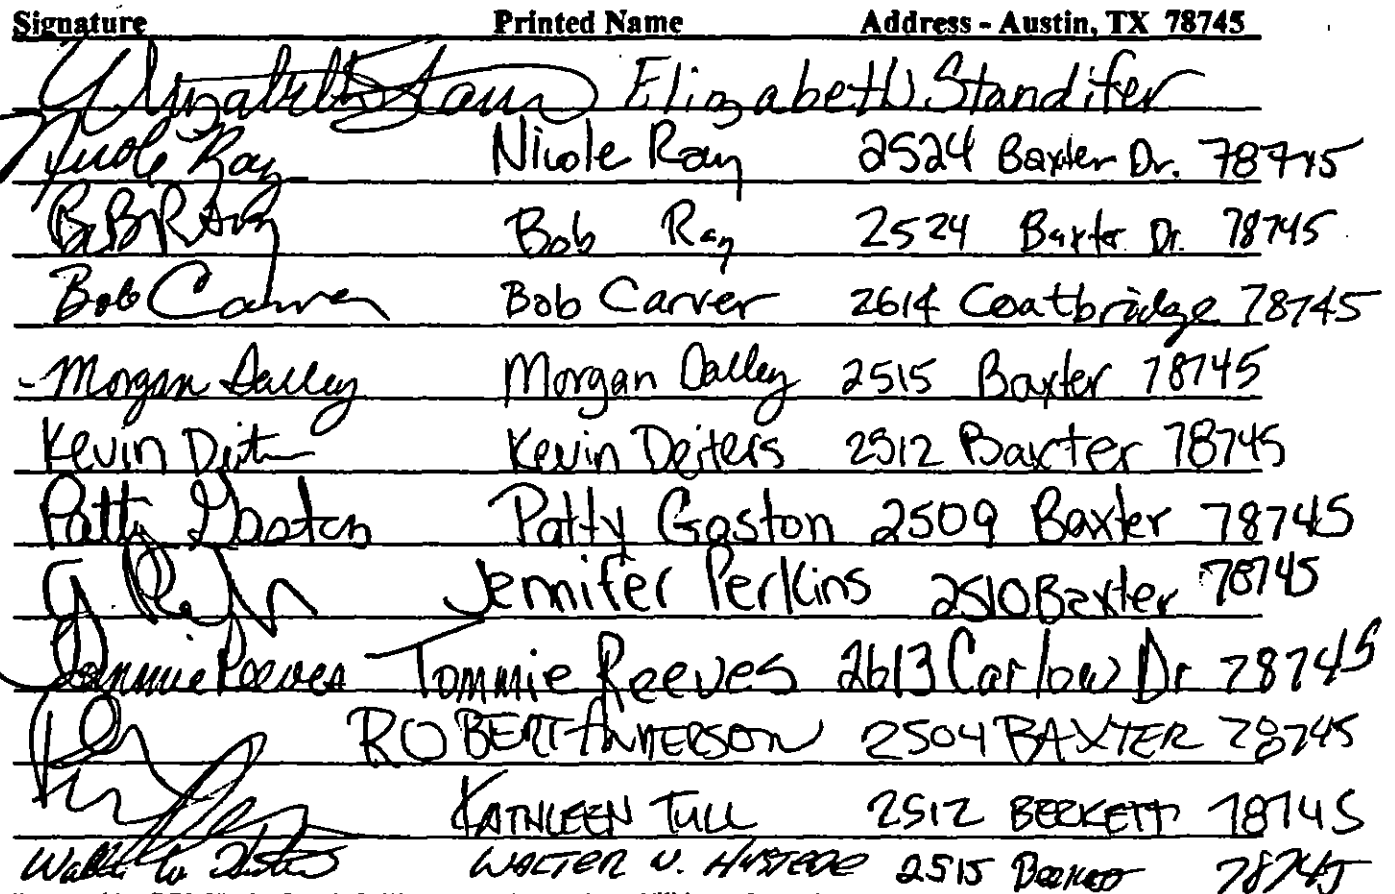 Signature Printed Name Address - Austin, TX 78745
Elizabeth Elizabeth Standifer
Nicole Ray Nicole Ray 2524 Baxter Dr. 78745
Bob Ray Bob Ray 2524 Baxter Dr. 78745
Bob Carver Bob Carver 2614 Coatbridge 78745
Morgan Dalley Morgan Dalley 2515 Baxter 78745
Kevin Kevin Deiters 2512 Baxter 78745
Patty Gaston Patty Gaston 2509 Baxter 78745
Jennifer Perkins 2510 Baxter 78745
Tommie Reeves Tommie Reeves 2613 Carlow Dr 78745
ROBERT ANDERSON 2504 BAXTER 78745
KATHLEEN TULL 2512 BECKETT 78745
WALTER W. 2515 78745